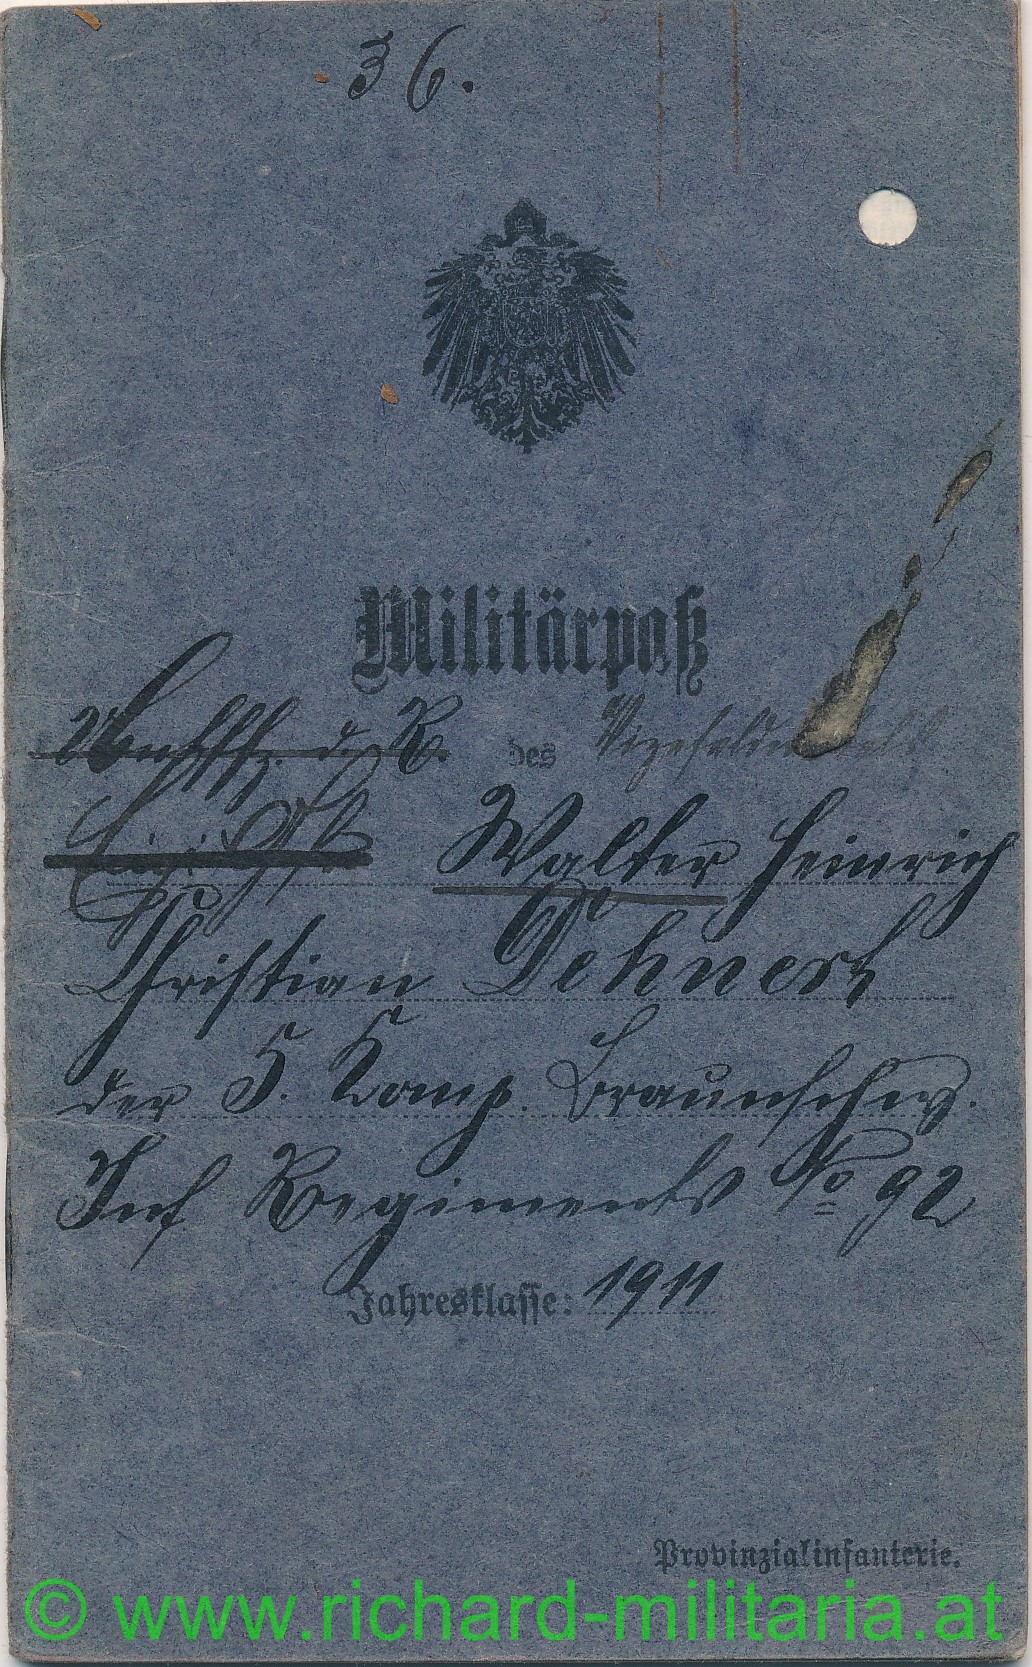 36.
Militärpaß
d. R. des Vizefeldwebels
Walter Heinrich
Christian Dehnert
der 5. Komp. Braunschw.
Inf Regiments No 92
Jahresklasse: 1911
Provinzialinfanterie.
© www.richard-militaria.at